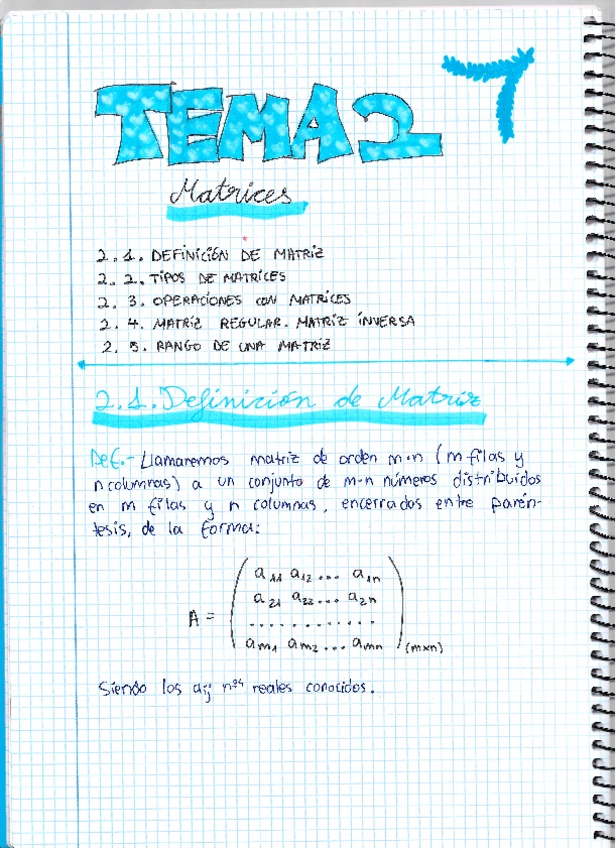 TEMA 2
7
Matrices
2.1. DEFINICIÓN DE MATRIZ
2.2. TIPOS DE MATRICES
2.3. OPERACIONES CON MATRICES
2.4. MATRIZ REGULAR. MATRIZ INVERSA
2.5. RANGO DE UNA MATRIZ
2.1. Definición de Matriz
Def.- Llamaremos matriz de orden m·n (m filas y
n columnas) a un conjunto de m·n números distribuidos
en m filas y n columnas, encerrados entre parén-
tesis, de la forma:
a₁₁ a₁₂ ... a₁ₙ
a₂₁ a₂₂ ... a₂ₙ
A = . . . . . . . . . . . .
aₘ₁ aₘ₂ ... aₘₙ (m×n)
Siendo los aᵢⱼ nºˢ reales conocidos.